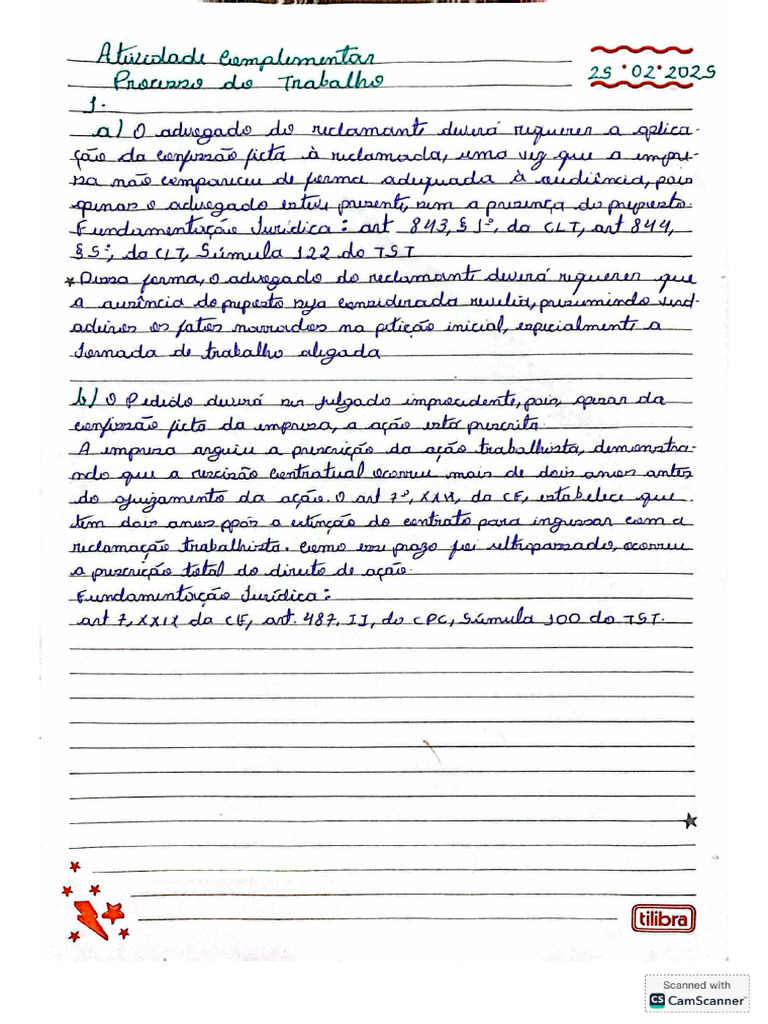 Atividade Complementar
Processo do Trabalho
25 • 02 • 2025
1.
a) O advogado do reclamante deverá requerer a aplica-
ção da confissão ficta à reclamada, uma vez que a empre-
sa não compareceu de forma adequada à audiência, pois
apenas o advogado esteve presente, sem a presença do preposto.
Fundamentação Jurídica: art 843, § 1º, da CLT, art 844,
§ 5º, da CLT, Súmula 122 do TST
* Dessa forma, o advogado do reclamante deverá requerer que
a ausência do preposto seja considerada revelia, presumindo verd-
adeiros os fatos narrados na petição inicial, especialmente a
Jornada de trabalho alegada
b) O Pedido deverá ser julgado improcedente, pois, apesar da
confissão ficta da empresa, a ação está prescrita.
A empresa arguiu a prescrição da ação trabalhista, demonstra-
ndo que a rescisão contratual ocorreu mais de dois anos antes
do ajuizamento da ação. O art 7º, XXIX, da CF, estabelece que
tem dois anos após a extinção do contrato para ingressar com a
reclamação trabalhista. Como esse prazo foi ultrapassado, ocorreu
a prescrição total do direito de ação.
Fundamentação Jurídica:
art 7, XXIX da CF, art. 487, II, do CPC, Súmula 100 do TST.
tilibra
Scanned with
CS CamScanner